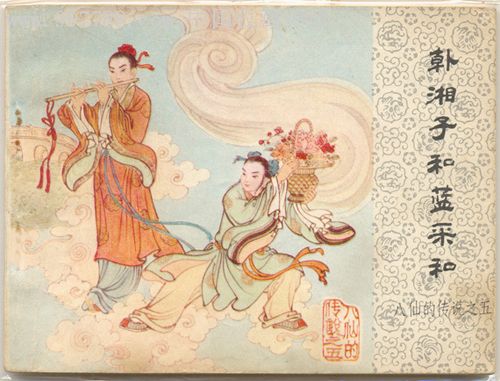 韩湘子和蓝采和
八仙的传说之五
八仙的
传说之五